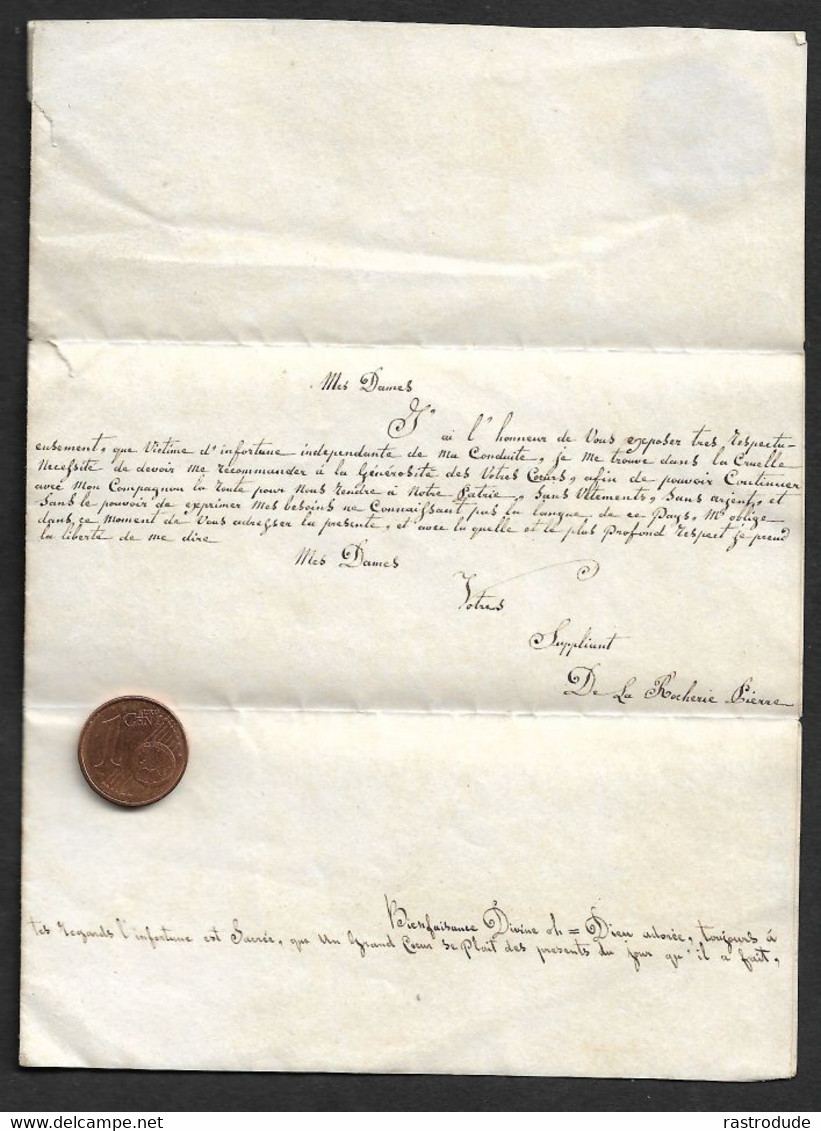 Mes Dames
J' ai l' honneur de Vous exposer tres respectu-
eusement, que Victime d' infortune independante de Ma Conduite, je Me trouve dans la Cruelle
Necessité de devoir Me recommander à la Générosité des Votres Cœurs, afin de pouvoir Continuer
avec Mon Compagnon la route pour Nous rendre à Notre Patrie, Sans Vêtements, Sans argent, et
Sans le pouvoir de exprimer Mes besoins ne Connaissant pas la langue de ce Pays, M' oblige
dans ce Moment de Vous adresser la presente, et avec la quelle et le plus Profond respect je prend
la liberté de me dire
Mes Dames
Votres
Suppliant
De La Rocherie Pierre
1
EURO
CENT
Bienfaisance Divine oh = Dieu adorée, toujours à
tes regards l' infortune est Sacrée, que Un Grand Cœur se Plait des presents du jour qu' il a fait,
rastrodude